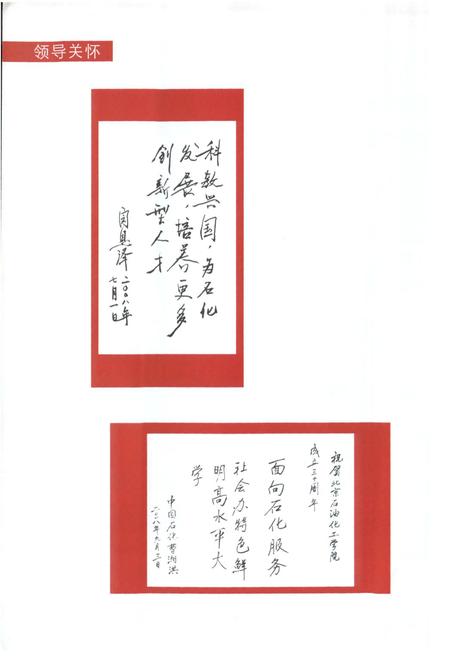 领导关怀
科教兴国，为石化
发展，培养更多
创新型人才
闵恩泽
二〇〇八年
七月一日
祝贺北京石油化工学院
成立三十周年
面向石化服务
社会办特色鲜
明高水平大
学
中国石化曹湘洪
二〇〇八年九月二日